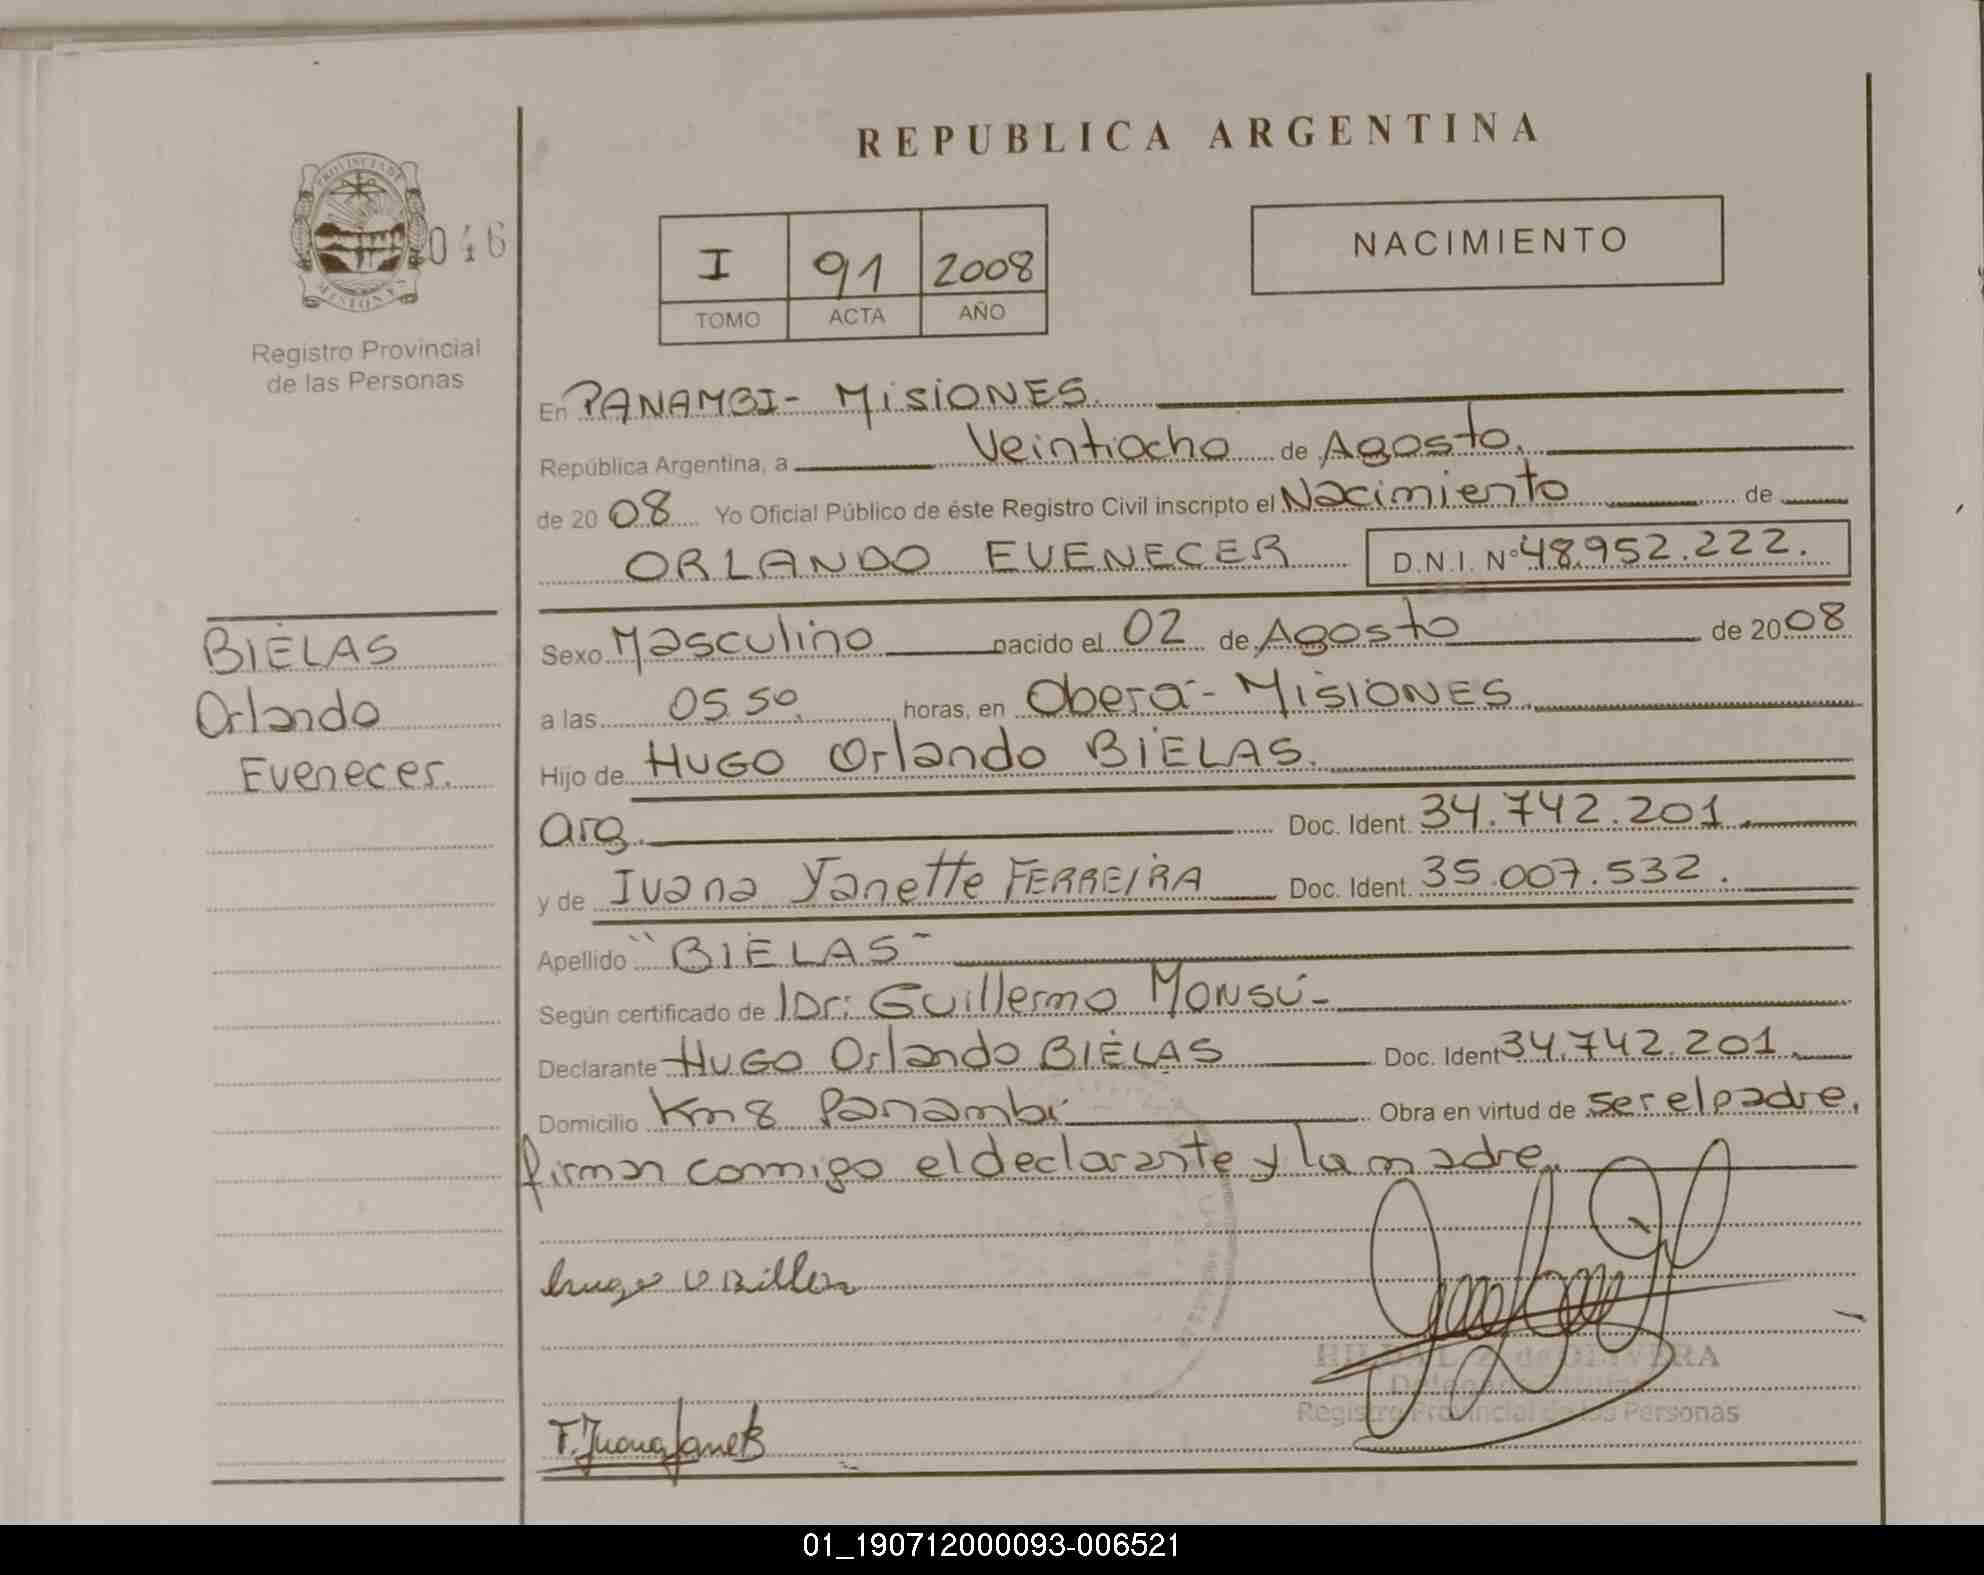 REPUBLICA ARGENTINA
PROVINCIA DE
MISIONES
046
Registro Provincial
de las Personas
I 91 2008
TOMO ACTA AÑO
NACIMIENTO
En PANAMBI - MisiONES.
República Argentina, a Veintiocho de Agosto.
de 20 08 Yo Oficial Público de éste Registro Civil inscripto el Nacimiento de
ORLANDO EVENECER D.N.I. Nº 48.952.222.
BIELAS
Orlando
Evenecer.
Sexo Masculino nacido el 02 de Agosto de 20 08
a las 05.50. horas, en Oberá - MISIONES.
Hijo de HUGO Orlando BIELAS.
arg. Doc. Ident. 34.742.201.
y de Ivana Yanette FERREIRA Doc. Ident. 35.007.532.
Apellido "BIELAS"
Según certificado de Dr: Guillermo MONSÚ-
Declarante HUGO Orlando BIELAS Doc. Ident 34.742.201.
Domicilio Km 8 Panambí Obra en virtud de ser el padre.
firman conmigo el declarante y la madre.
de OLIVERA
Registro Provincial de las Personas
01_190712000093-006521